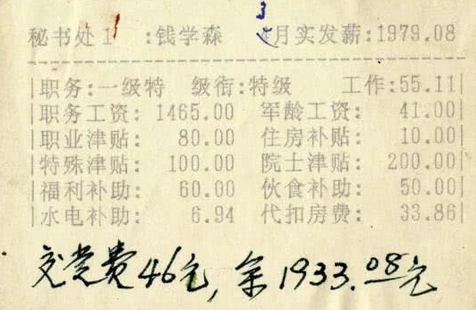 秘书处1 :钱学森 3月实发薪:1979.08
职务:一级特 级衔:特级 工作:55.11
职务工资: 1465.00 军龄工资: 41.00
职业津贴: 80.00 住房补贴: 10.00
特殊津贴: 100.00 院士津贴: 200.00
福利补助: 60.00 伙食补助: 50.00
水电补助: 6.94 代扣房费: 33.86
交党费46元,余1933.08元